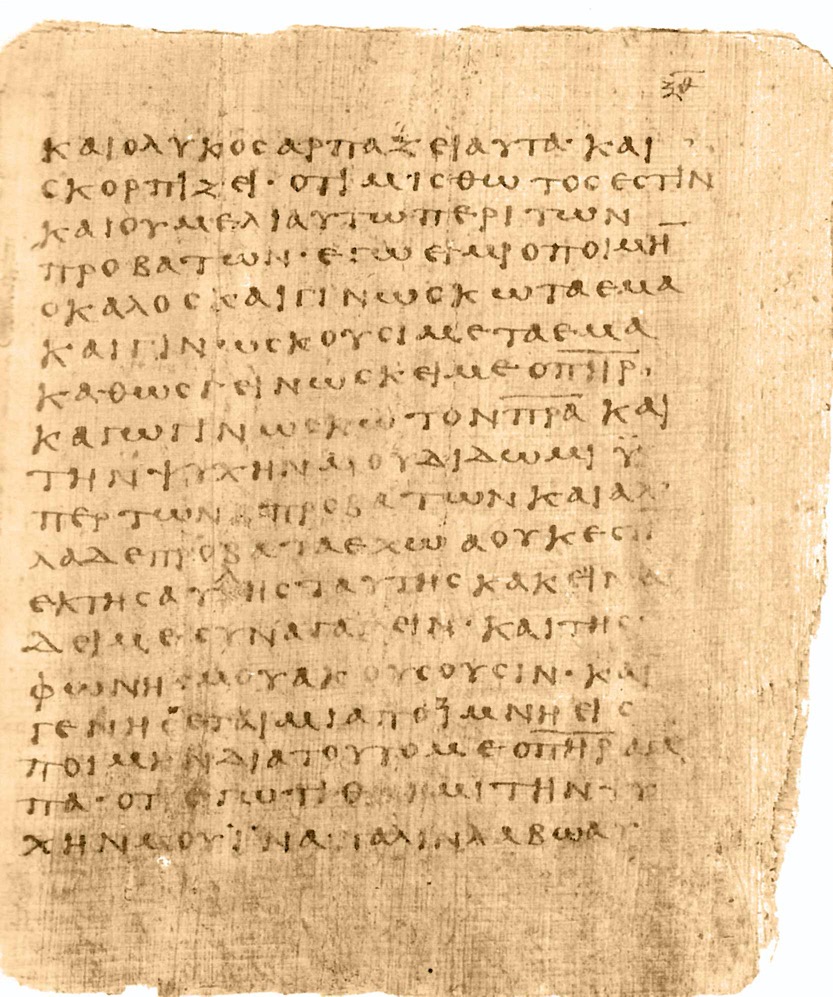 ξ̅θ̅
ΚΑΙΟΛΥΚΟϹΑΡΠΑΖΕΙΑΥΤΑ· ΚΑΙ
ϹΚΟΡΠΙΖΕΙ· ΟΤΙΜΙϹΘΩΤΟϹΕϹΤΙΝ
ΚΑΙΟΥΜΕΛΙΑΥΤΩΠΕΡΙΤΩΝ
ΠΡΟΒΑΤΩΝ· ΕΓΩΕΙΜΙΟΠΟΙΜΗ̅
ΟΚΑΛΟϹΚΑΙΓΙΝΩϹΚΩΤΑΕΜΑ
ΚΑΙΓΙΝΩϹΚΟΥϹΙΜΕΤΑΕΜΑ
ΚΑΘΩϹΓΕΙΝΩϹΚΕΙΜΕΟΠ̅Η̅Ρ̅
ΚΑΓΩΓΙΝΩϹΚΩΤΟΝΠ̅Ρ̅Α̅ ΚΑΙ
ΤΗΝΨΥΧΗΝΜΟΥΔΙΔΩΜΙΫ
ΠΕΡΤΩΝΠΡΟΒΑΤΩΝΚΑΙΑΛ
ΛΑΔΕΠΡΟΒΑΤΑΕΧΩΑΟΥΚΕϹΤΙ
ΕΚΤΗϹΑΥΛΗϹΤΑΥΤΗϹΚΑΚΕΙΝΑ
ΔΕΙΜΕϹΥΝΑΓΑΓΕΙΝ· ΚΑΙΤΗϹ
ΦΩΝΗϹΜΟΥΑΚΟΥϹΟΥϹΙΝ· ΚΑΙ
ΓΕΝΗϹΕΤΑΙΜΙΑΠΟΙΜΝΗΕΙϹ
ΠΟΙΜΗΝΔΙΑΤΟΥΤΟΜΕΟΠ̅Η̅Ρ̅ΑΓΑ
ΠΑ· ΟΤΙΕΓΩΤΙΘΗΜΙΤΗΝΨΥ
ΧΗΝΜΟΥΪΝΑΠΑΛΙΝΛΑΒΩΑΥ